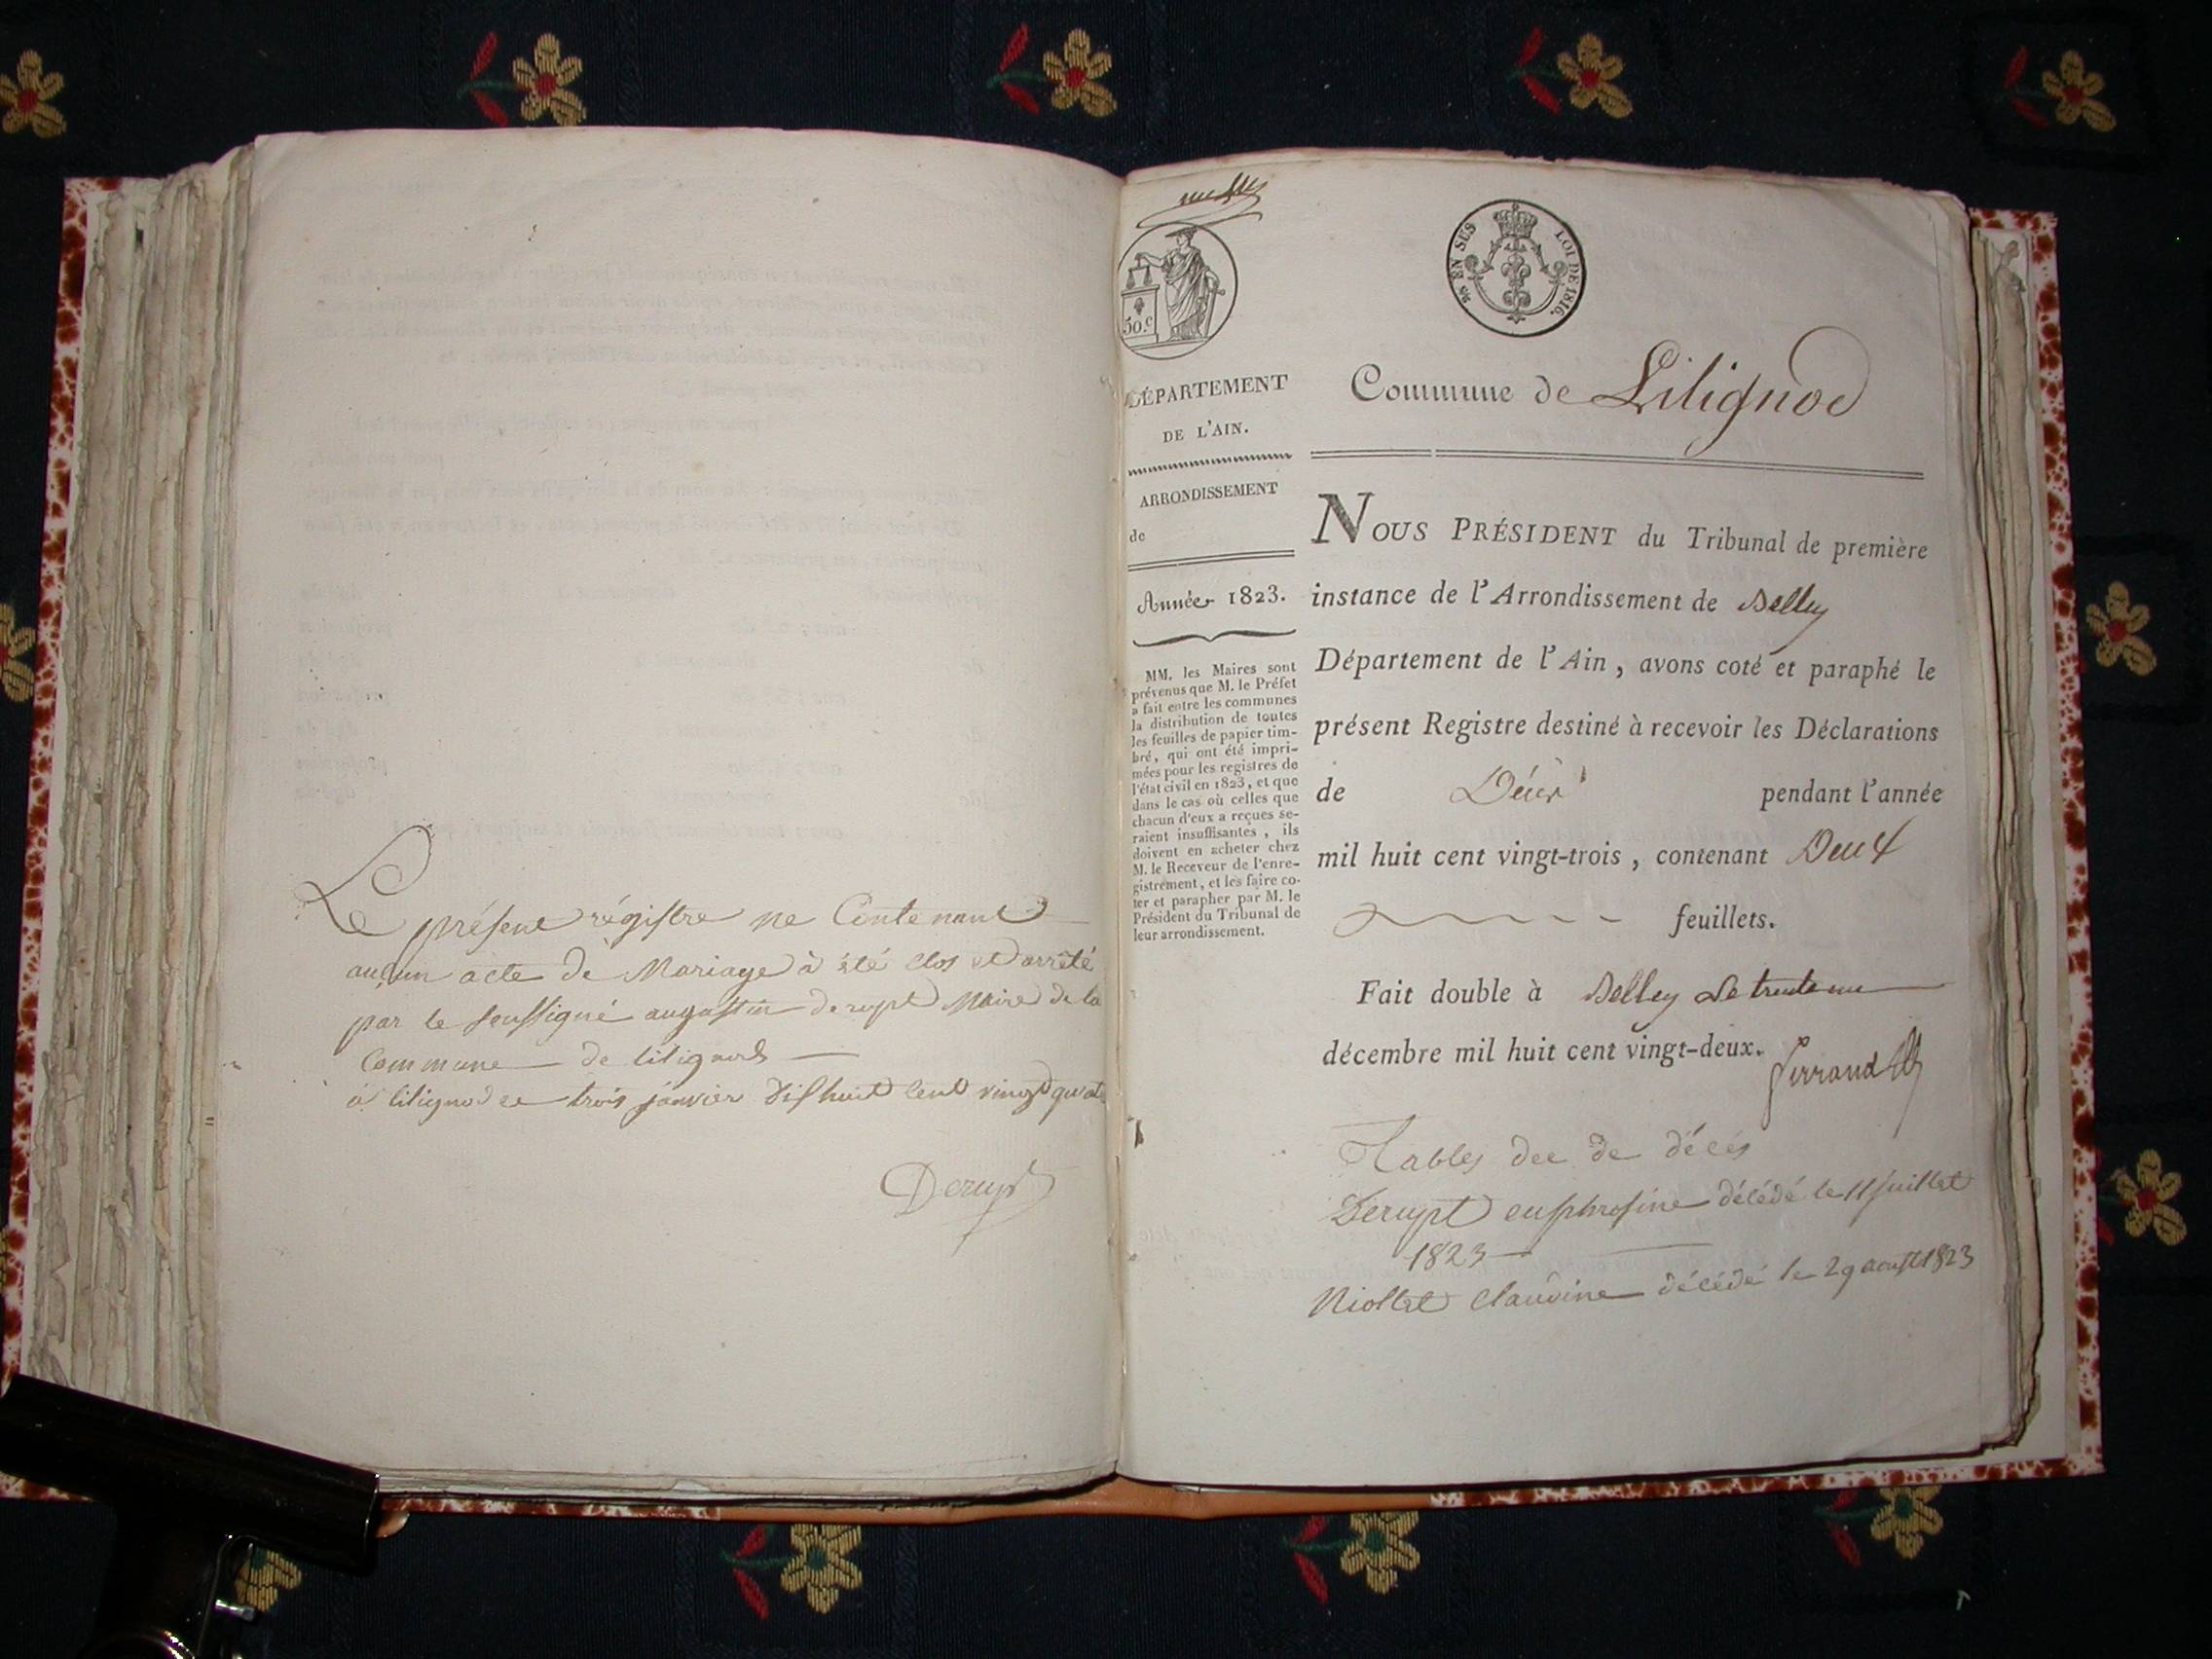 Le présent régistre ne Contenant
aucun acte de Mariage à été clos et arrêté
par le soussigné augustin derupt Maire de la
Commune de lilignod
à lilignod ce trois janvier dishuit cent vingt quatre
Derupt
50.c
SUS LOI DE 1816.
DÉPARTEMENT
DE L'AIN.
ARRONDISSEMENT
de
Année 1823.
MM. les Maires sont
prévenus que M. le Préfet
a fait entre les communes
la distribution de toutes
les feuilles de papier tim-
bré, qui ont été impri-
mées pour les registres de
l'état civil en 1823, et que
dans le cas où celles que
chacun d'eux a reçues se-
raient insuffisantes, ils
doivent en acheter chez
M. le Receveur de l'enre-
gistrement, et les faire co-
ter et parapher par M. le
Président du Tribunal de
leur arrondissement.
Commune de Lilignod
NOUS PRÉSIDENT du Tribunal de première
instance de l'Arrondissement de Belley
Département de l'Ain, avons coté et paraphé le
présent Registre destiné à recevoir les Déclarations
de Décès pendant l'année
mil huit cent vingt-trois, contenant Deux
feuillets.
Fait double à Belley Le trente un
décembre mil huit cent vingt-deux.
Tables dee de décés
Derupt euphrosine décédé le 11 juillet
1823
Niollet claudine décédé le 29 aoust 1823